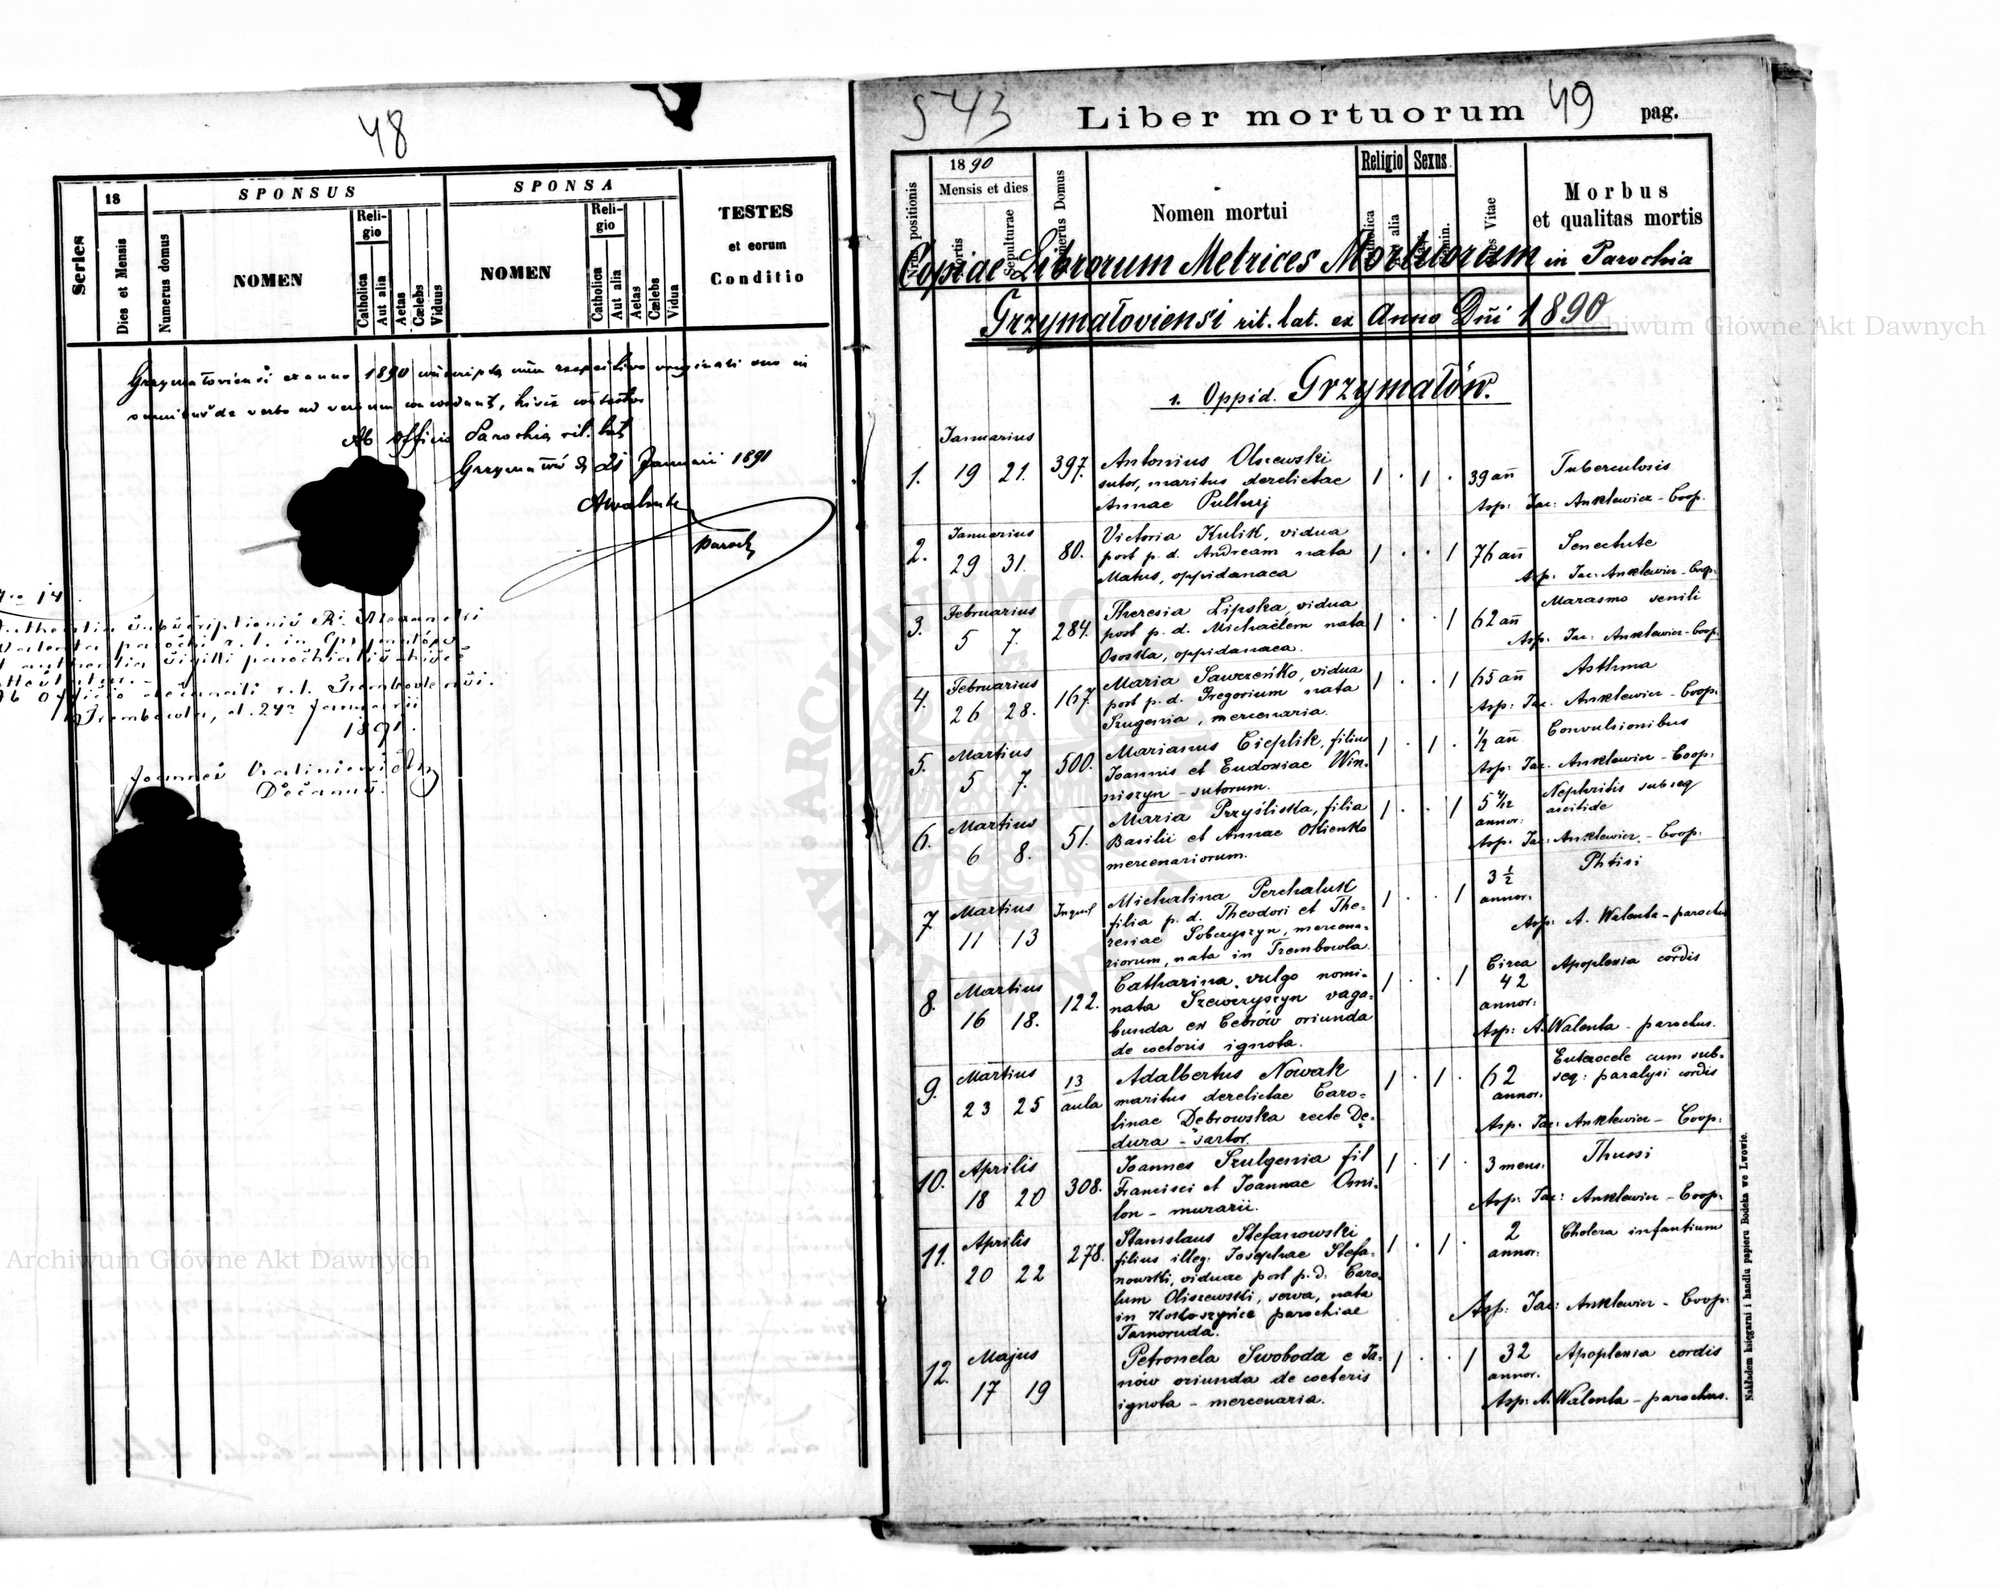 48
Series
18
Dies et Mensis
SPONSUS
Numerus domus
NOMEN
Reli-
gio
Catholica
Aut alia
Aetas
Cælebs
Viduus
SPONSA
NOMEN
Reli-
gio
Catholica
Aut alia
Aetas
Cælebs
Vidua
TESTES
et eorum
Conditio
Grzymałoviensi ex anno 1890 originali suo in
verbo ad verbum concordant, hisce
Ab officio Parochiae rit. lat.
Grzymałów d. 21 Januarii 1891
AWalenta
paroch
parochi r. l. in
sigilli parochialis hisce
Ab Officio decanali r. l. Trembovlensi.
Trembowla, d. 24a Januarii
1891.
Joannes
Decanus.
543
Liber mortuorum
49
pag.
Nrus positionis
1890
Mensis et dies
mortis
Sepulturae
Numerus Domus
Nomen mortui
Religio
Catholica
Aut alia
Sexus
Dies Vitae
Morbus
et qualitas mortis
Copiae Librorum Metrices Mortuorum in Parochia
Grzymałoviensi rit. lat. ex Anno Dni 1890
1. Oppid. Grzymałów.
Januarius
1. 19 21. 397. Antonius Olszewski 1 . 1 . 39 ann Tuberculosis
sutor, maritus derelictae
Annae Pulluj
Asp: Jac: Anklewicz - Coop.
Januarius
2. 29 31. 80. Victoria Kulik, vidua 1 . . 1 76 ann Senectute
post p. d. Andream nata
Matus, oppidanaea
Asp: Jac: Anklewicz - Coop.
Februarius
3. 5 7. 284. Theresia Lipska, vidua 1 . . 1 62 ann Marasmo senili
post p. d. Michaëlem nata
oppidanaea.
Asp: Jac: Anklewicz - Coop.
Februarius
4. 26 28. 167. Maria Sawczeńko, vidua 1 . . 1 65 ann Asthma
post p. d. Gregorium nata
Szugenia, mercenaria.
Asp: Jac. Anklewicz - Coop.
Martius
5. 5 7. 500. Marianus Cieplik, filius 1 . 1 . 1/2 ann Convulsionibus
Joannis et Eudoxiae Win-
niszyn - sutorum.
Asp: Jac. Anklewicz - Coop:
Martius
6. 6 8. 51. Maria Przyśliska, filia 1 . . 1 5 4/12 annor: Nephritis subseq
Basilii et Annae Okienko
mercenariorum.
ascitide
Asp: Jac: Anklewicz - Coop.
Martius
7 11 13 Michalina Perchaluk 1 . . 1 3 1/2 annor. Phtisi
filia p. d. Theodori et The-
resiae Sobczyszyn, mercena-
riorum, nata in Trembowla.
Asp: A. Walenta - parochus
Martius
8. 16 18. 122. Catharina, vulgo nomi- 1 . . 1 Circa 42 annor: Apoplexia cordis
nata Szewczyszyn vaga-
bunda ex Cebrów oriunda
de coeteris ignota.
Asp: A. Walenta - parochus.
Martius
9. 23 25 13 aula Adalbertus Nowak 1 . 1 . 62 annor. Enterocele cum sub-
maritus derelictae Caro-
linae Dębrowska recte Dę-
dura - sartor.
seq: paralysi cordis
Asp: Jac: Anklewicz - Coop:
Aprilis
10. 18 20 308. Joannes Szulgenia fil 1 . 1 . 3 mens. Thussi
Francisci et Joannae Omi-
lon - murarii.
Asp: Jac: Anklewicz - Coop:
Aprilis
11. 20 22 278. Stanislaus Stefanowski 1 . 1 . 2 annor: Cholera infantium
filius illeg. Josephae Stefa-
nowski, viduae post p. d. Caro-
lum Oliszewski, serva, nata
in parochiae
Tarnoruda.
Asp: Jac: Anklewicz - Coop:
Majus
12. 17 19 Petronela Swoboda e Ja- 1 . . 1 32 annor. Apoplexia cordis
nów oriunda de coeteris
ignota - mercenaria.
Asp: A. Walenta - parochus.
Nakładem księgarni i handlu papieru Bodeka we Lwowie.
Archiwum Główne Akt Dawnych
Archiwum Główne Akt Dawnych